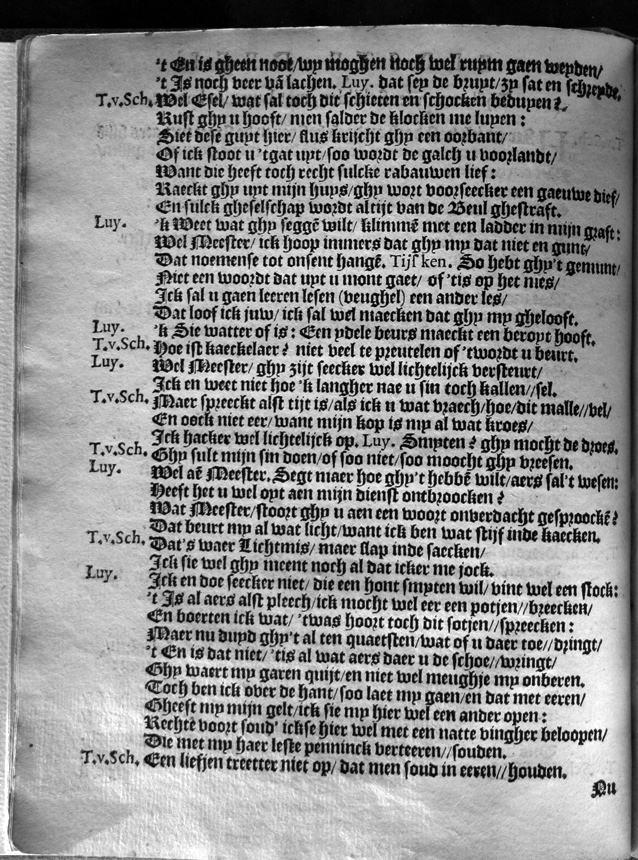 't En is gheen noot/wy moghen noch wel ruym gaen weyden/
't Is noch veer vā lachen. Luy. dat sey de bruyt/zy sat en schreyde.
T.v.Sch. Wel Esel/ wat sal toch dit schieten en schocken beduyen?
Rust ghy u hooft/ men salder de klocken me luyen:
Siet dese guyt hier/ flus krijcht ghy een oorbant/
Of ick stoot u 'tgat uyt/soo wordt de galch u voorlandt/
Want die heeft toch recht sulcke rabauwen lief:
Raeckt ghy uyt mijn huys/ghy wort voorseecker een gaeuwe dief/
En sulck gheselschap wordt altijt van de Beul ghestraft.
Luy. 'k Weet wat ghy seggē wilt/ klimmē met een ladder in mijn graft:
Wel Meester/ ick hoop immers dat ghy my dat niet en gunt/
Dat noemense tot onsent hangē. Tijs ken. So hebt ghy't gemunt/
Niet een woordt dat uyt u mont gaet/ of 'tis op het nies/
Ick sal u gaen leeren lesen (veughel) een ander les/
Dat loof ick juw/ ick sal wel maecken dat ghy my ghelooft.
Luy. 'k Sie watter of is: Een ydele beurs maeckt een beroyt hooft.
T.v.Sch. Hoe ist kaeckelaer? niet veel te preutelen of 'twordt u beurt.
Luy. Wel Meester/ ghy zijt seecker wel lichtelijck versteurt/
Ick en weet niet hoe 'k langher nae u sin toch kallen//sel.
T.v.Sch. Maer spreeckt alst tijt is/als ick u wat vraech/hoe/dit malle//vel/
En oock niet eer/want mijn kop is my al wat kroes/
Ick hacker wel lichtelijck op. Luy. Smyten? ghy mocht de droes.
T.v.Sch. Ghy sult mijn sin doen/of soo niet/soo moocht ghy vreesen.
Luy. Wel aē Meester. Segt maer hoe ghy't hebbē wilt/aers sal't wesen:
Heeft het u wel oyt aen mijn dienst ontbroocken?
Wat Meester/stoort ghy u aen een woort onverdacht gesproockē?
Dat beurt my al wat licht/want ick ben wat stijf inde kaecken.
T.v.Sch. Dat's waer Lichtmis/ maer slap inde saecken/
Ick sie wel ghy meent noch al dat icker me jock.
Luy. Ick en doe seecker niet/ die een hont smyten wil/ vint wel een stock:
't Is al aers alst pleech/ick mocht wel eer een potjen//breecken/
En boerten ick wat/ 'twas hoort toch dit sotjen//spreecken:
Maer nu duyd ghy't al ten quaetsten/wat of u daer toe//dringt/
't En is dat niet/ 'tis al wat aers daer u de schoe//wringt/
Ghy waert my garen quijt/en niet wel meughje my onberen.
Toch ben ick over de hant/soo laet my gaen/en dat met eeren/
Gheest my mijn gelt/ick sie my hier wel een ander open:
Rechte voort soud' ickse hier wel met een natte vingher beloopen/
Die met my haer leste penninck verteeren//souden.
T.v.Sch. Een liefjen treetter niet op/ dat men soud in eeren//houden.
Nu